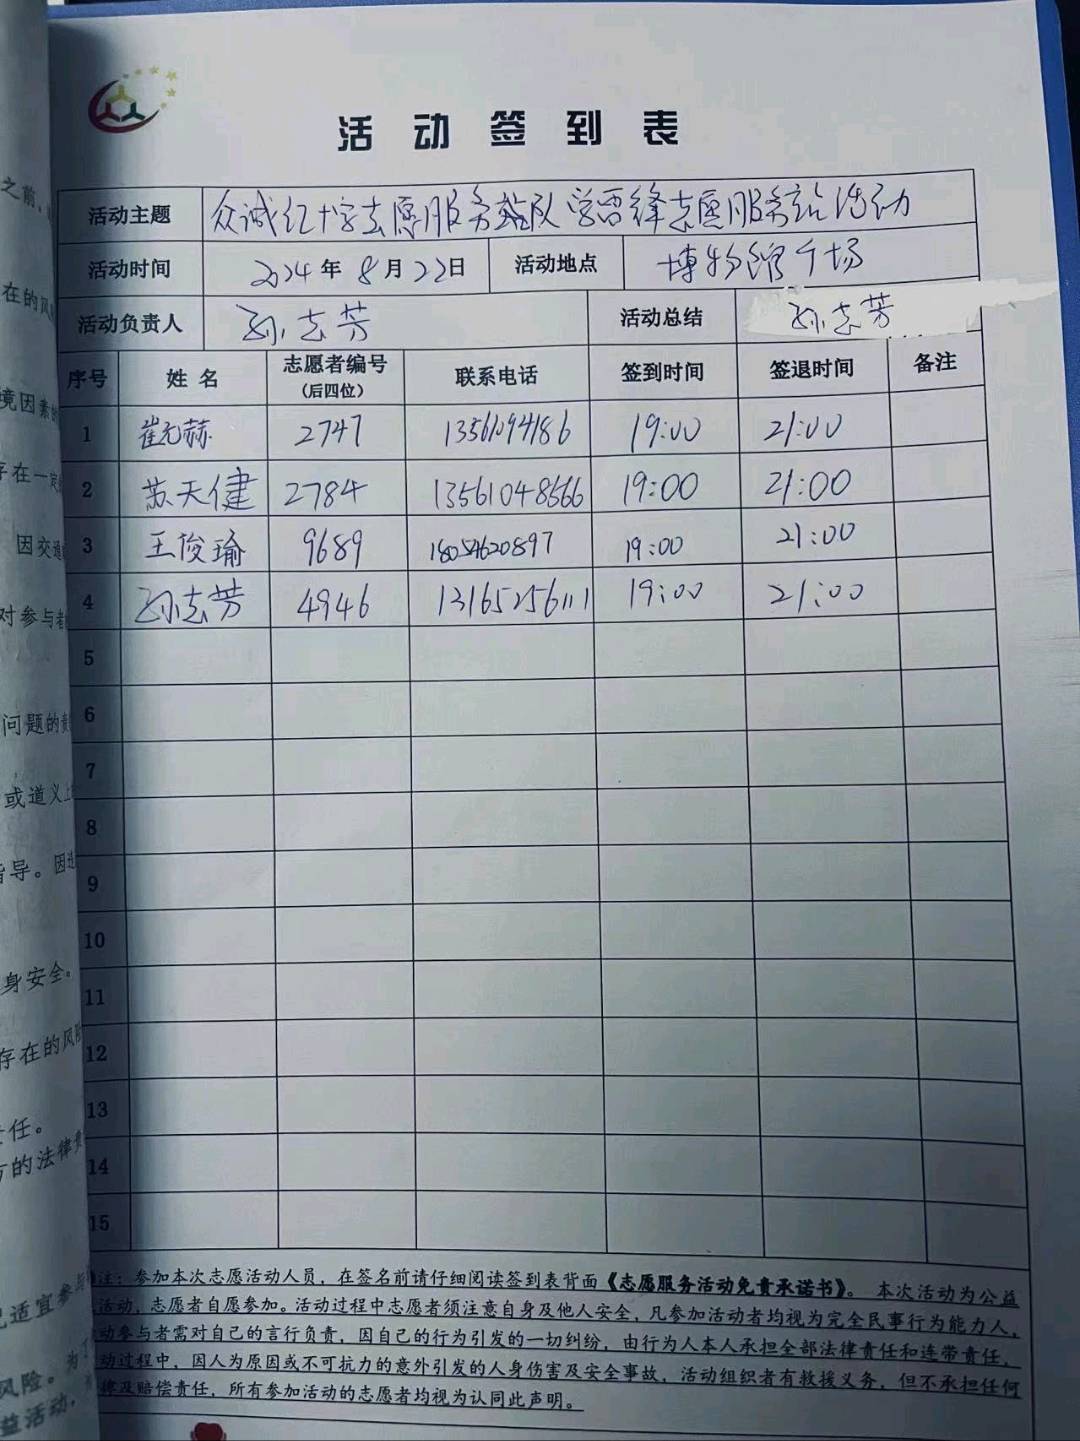 活动签到表
活动主题 众诚红十字志愿服务站队学雷锋志愿服务站活动
活动时间 2024年8月22日 活动地点 博物馆广场
活动负责人 孙志芳 活动总结 孙志芳
序号 姓名 志愿者编号 联系电话 签到时间 签退时间 备注
(后四位)
1 崔元赫 2747 13561094186 19:00 21:00
2 苏天健 2784 13561048566 19:00 21:00
3 王俊瑜 9689 18054620897 19:00 21:00
4 孙志芳 4946 13165256111 19:00 21:00
5
6
7
8
9
10
11
12
13
14
15
注：参加本次志愿活动人员，在签名前请仔细阅读签到表背面《志愿服务活动免责承诺书》。本次活动为公益
活动，志愿者自愿参加。活动过程中志愿者须注意自身及他人安全，凡参加活动者均视为完全民事行为能力人，
动参与者需对自己的言行负责，因自己的行为引发的一切纠纷，由行为人本人承担全部法律责任和连带责任。
动过程中，因人为原因或不可抗力的意外引发的人身伤害及安全事故，活动组织者有救援义务，但不承担任何
律及赔偿责任，所有参加活动的志愿者均视为认同此声明。
之前，
在的风
境因素
存在一定
因交通
对参与者
问题的责
或道义上
指导。因
身安全。
存在的风险
责任。
方的法律责
已适宜参与
风险。为
益活动，